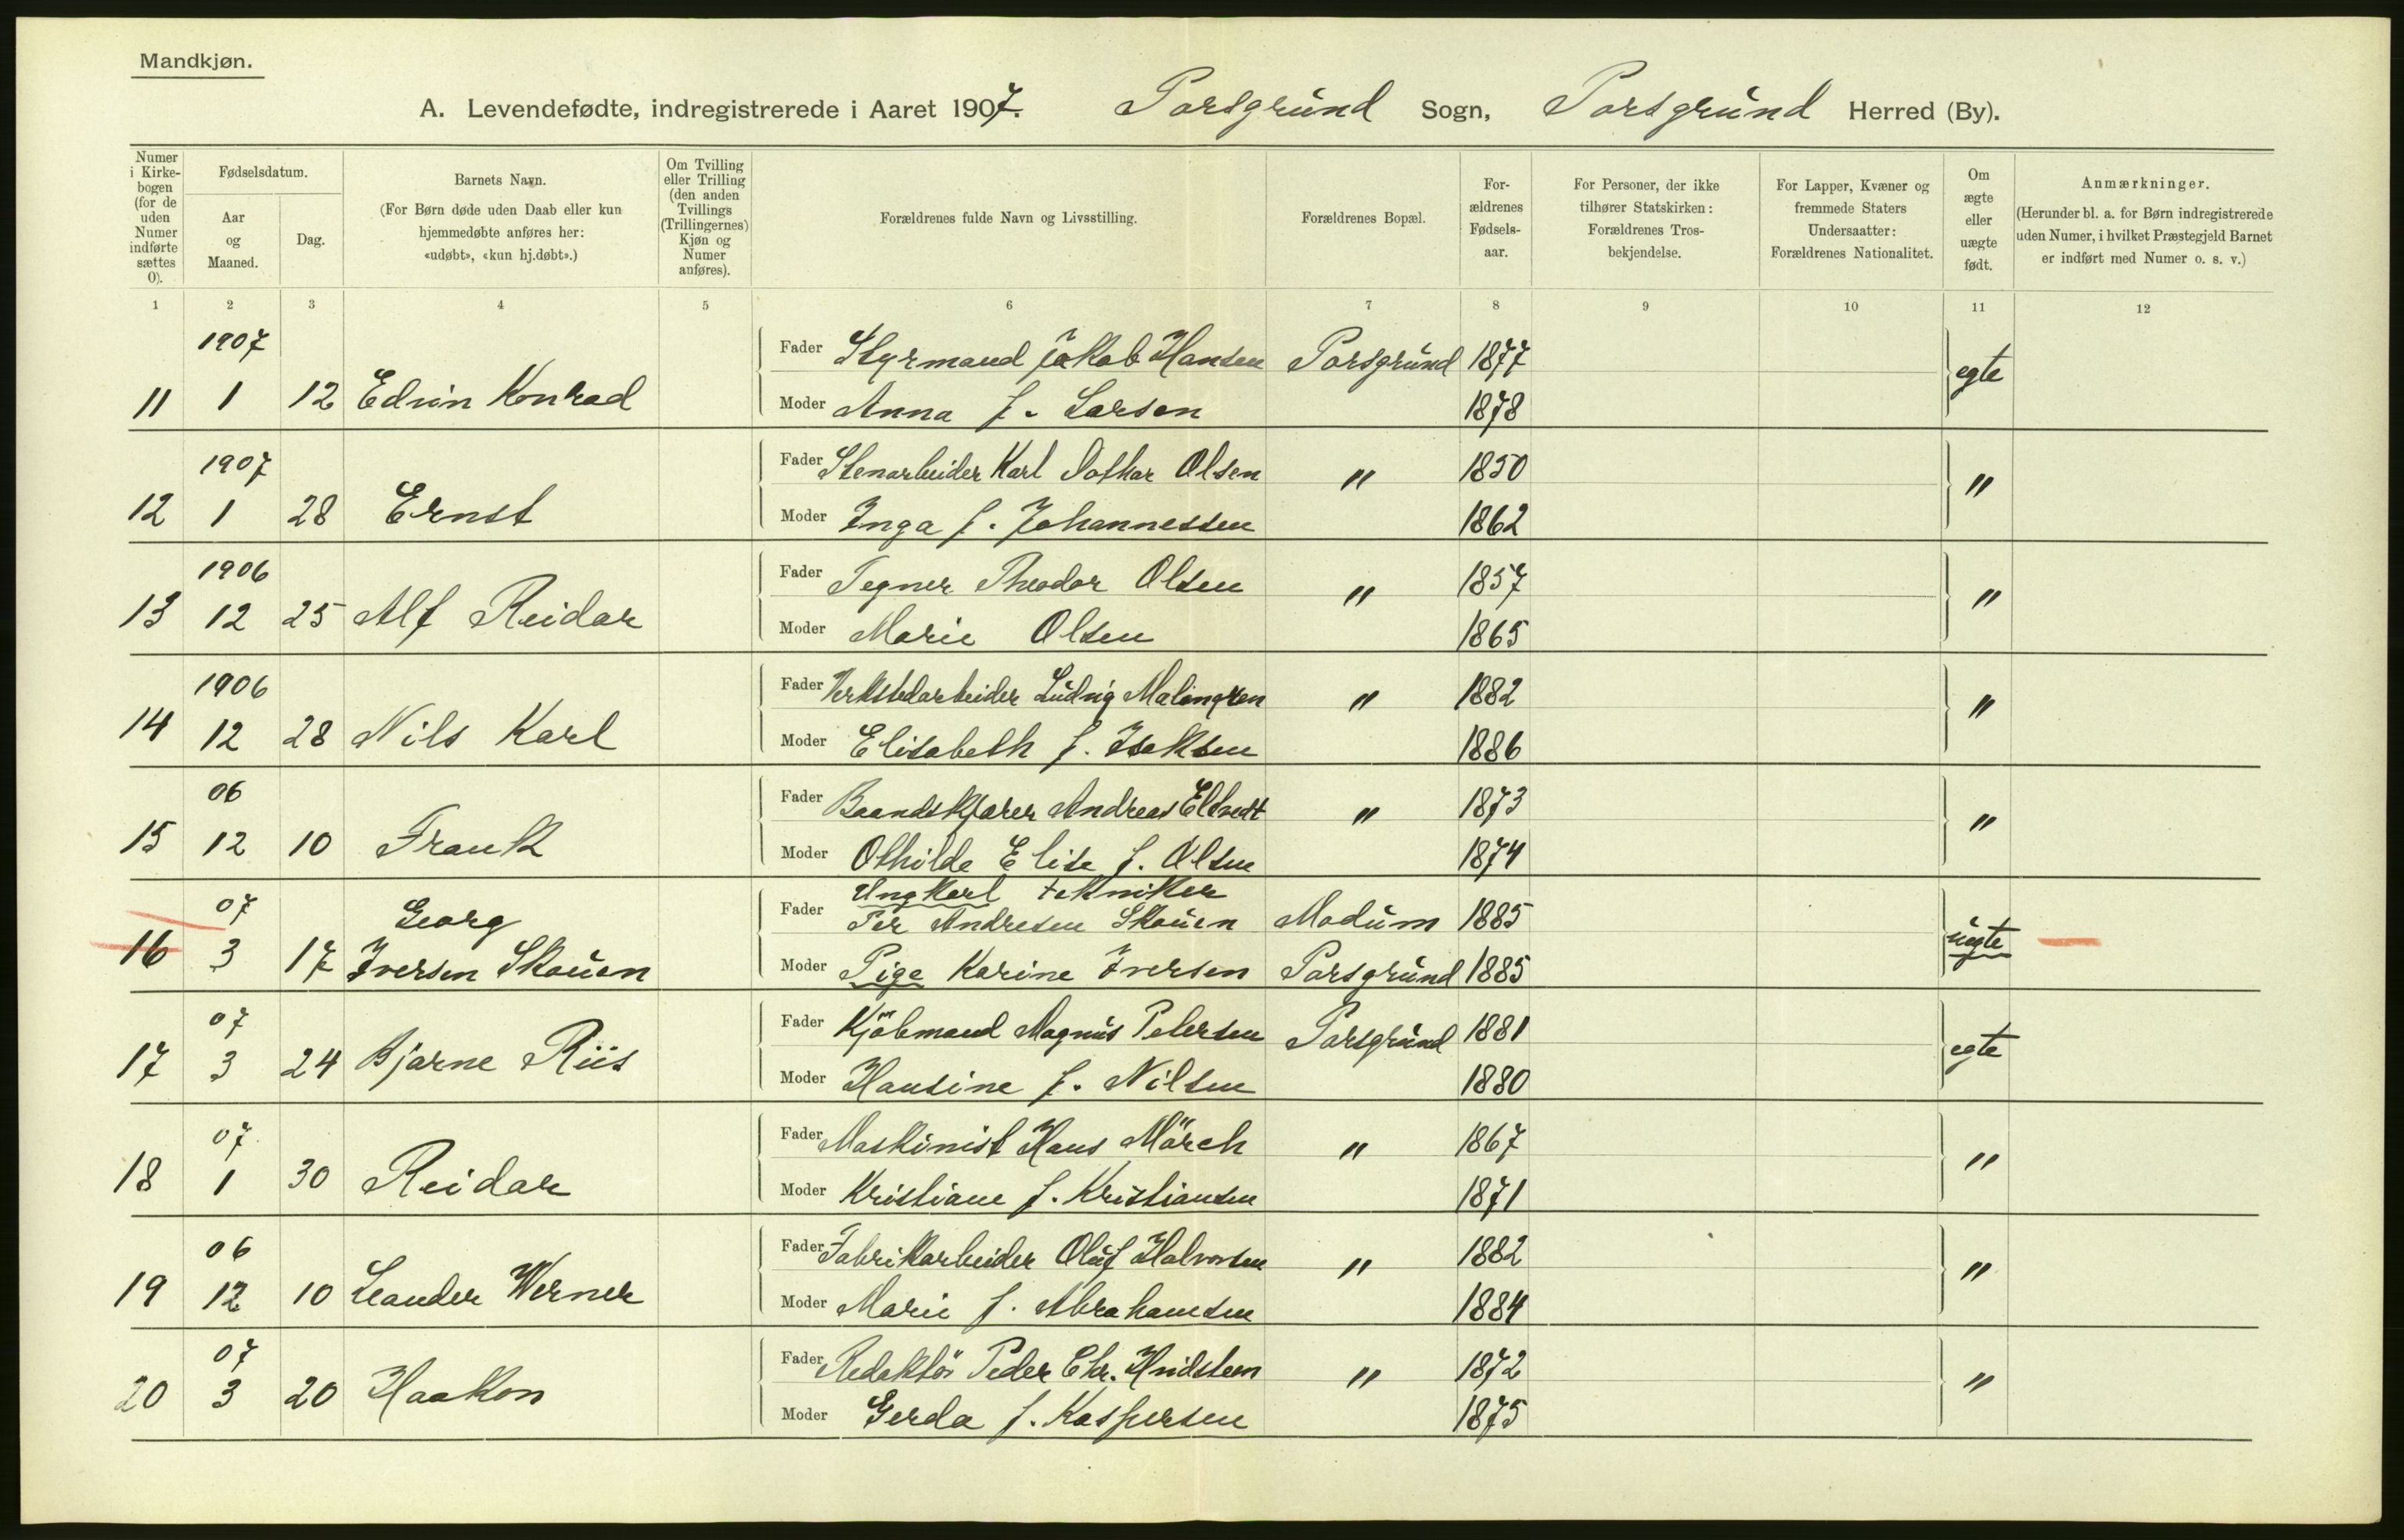 Mandkjøn.
A. Levendefødte, indregistrerede i Aaret 1907. Porsgrund Sogn, Porsgrund Herred (By).
Numer i Kirkebogen (for de uden Numer indførte sættes 0).
Fødselsdatum.
Aar og Maaned.
Dag.
Barnets Navn.
(For Børn døde uden Daab eller kun hjemmedøbte anføres her: «udøbt», «kun hj.døbt».)
Om Tvilling eller Trilling (den anden Tvillings (Trillingernes) Kjøn og Numer anføres).
Forældrenes fulde Navn og Livsstilling.
Forældrenes Bopæl.
Forældrenes Fødselsaar.
For Personer, der ikke tilhører Statskirken: Forældrenes Trosbekjendelse.
For Lapper, Kvæner og fremmede Staters Undersaatter: Forældrenes Nationalitet.
Om ægte eller uægte født.
Anmærkninger.
(Herunder bl. a. for Børn indregistrerede uden Numer, i hvilket Præstegjeld Barnet er indført med Numer o. s. v.)
1 2 3 4 5 6 7 8 9 10 11 12
1907 Fader Styrmand Jakob Hansen Porsgrund 1877
11 1 12 Edvin Konrad Moder Anna f. Larsen 1878 egte
1907 Fader Stenarbeider Karl Lothar Olsen " 1850
12 1 28 Ernst Moder Inga f. Johannessen 1862 "
1906 Fader Tegner Theodor Olsen " 1857
13 12 25 Alf Reidar Moder Marie Olsen 1865 "
1906 Fader Verkstedarbeider Ludvig Malmgren " 1882
14 12 28 Nils Karl Moder Elisabeth f. Isaksen 1886 "
06 Fader Baandskjærer Andreas Eltvedt " 1873
15 12 10 Frank Moder Othilde Elise f. Olsen 1874 "
07 Georg Fader Ungkarl tekniker
Per Andresen Skouen Modum 1885
16 3 17 Iversen Skouen Moder Pige Karine Iversen Porsgrund 1885 uegte
07 Fader Kjöbmand Magnus Petersen Porsgrund 1881
17 3 24 Bjarne Riis Moder Hansine f. Nilsen 1880 egte
07 Fader Maskinist Hans Mörch " 1867
18 1 30 Reidar Moder Kristiane f. Kristiansen 1871 "
06 Fader Fabrikarbeider Oluf Halvorsen " 1882
19 12 10 Leander Werner Moder Marie f. Abrahamsen 1884 "
07 Fader Redaktör Peder Chr. Hvidsteen " 1872
20 3 20 Haakon Moder Gerda f. Kaspersen 1875 "